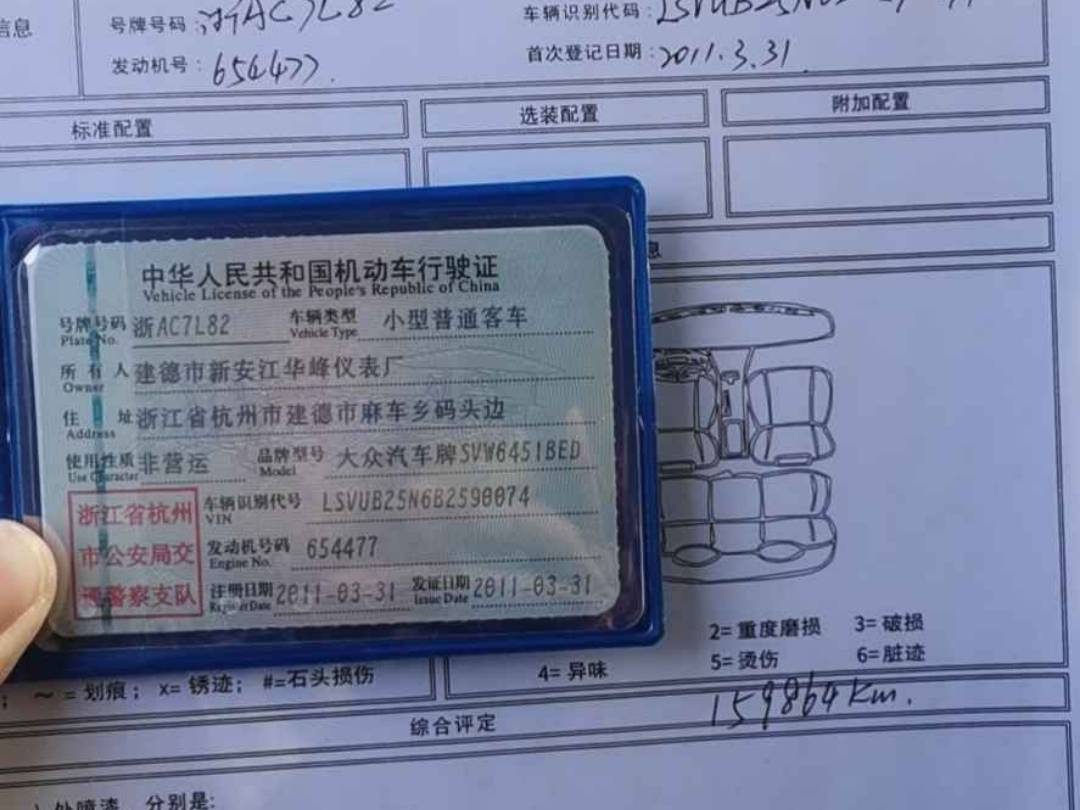 信息
号牌号码:浙AC7L82
车辆识别代码:
发动机号:654477.
首次登记日期:2011.3.31.
标准配置
选装配置
附加配置
息
中华人民共和国机动车行驶证
Vehicle License of the People's Republic of China
号牌号码 浙AC7L82 车辆类型 小型普通客车
Plate No. Vehicle Type
所有人 建德市新安江华峰仪表厂
Owner
住址 浙江省杭州市建德市麻车乡码头边
Address
使用性质 非营运 品牌型号 大众汽车牌SVW6451BED
Use Character Model
浙江省杭州
市公安局交
通警察支队
车辆识别代号 LSVUB25N6B2590074
VIN
发动机号码 654477
Engine No.
注册日期 2011-03-31 发证日期 2011-03-31
Register Date Issue Date
2=重度磨损 3=破损
4=异味 5=烫伤 6=脏迹
; ～=划痕; x=锈迹; #=石头损伤
综合评定
159864km.
处喷漆,分别是: